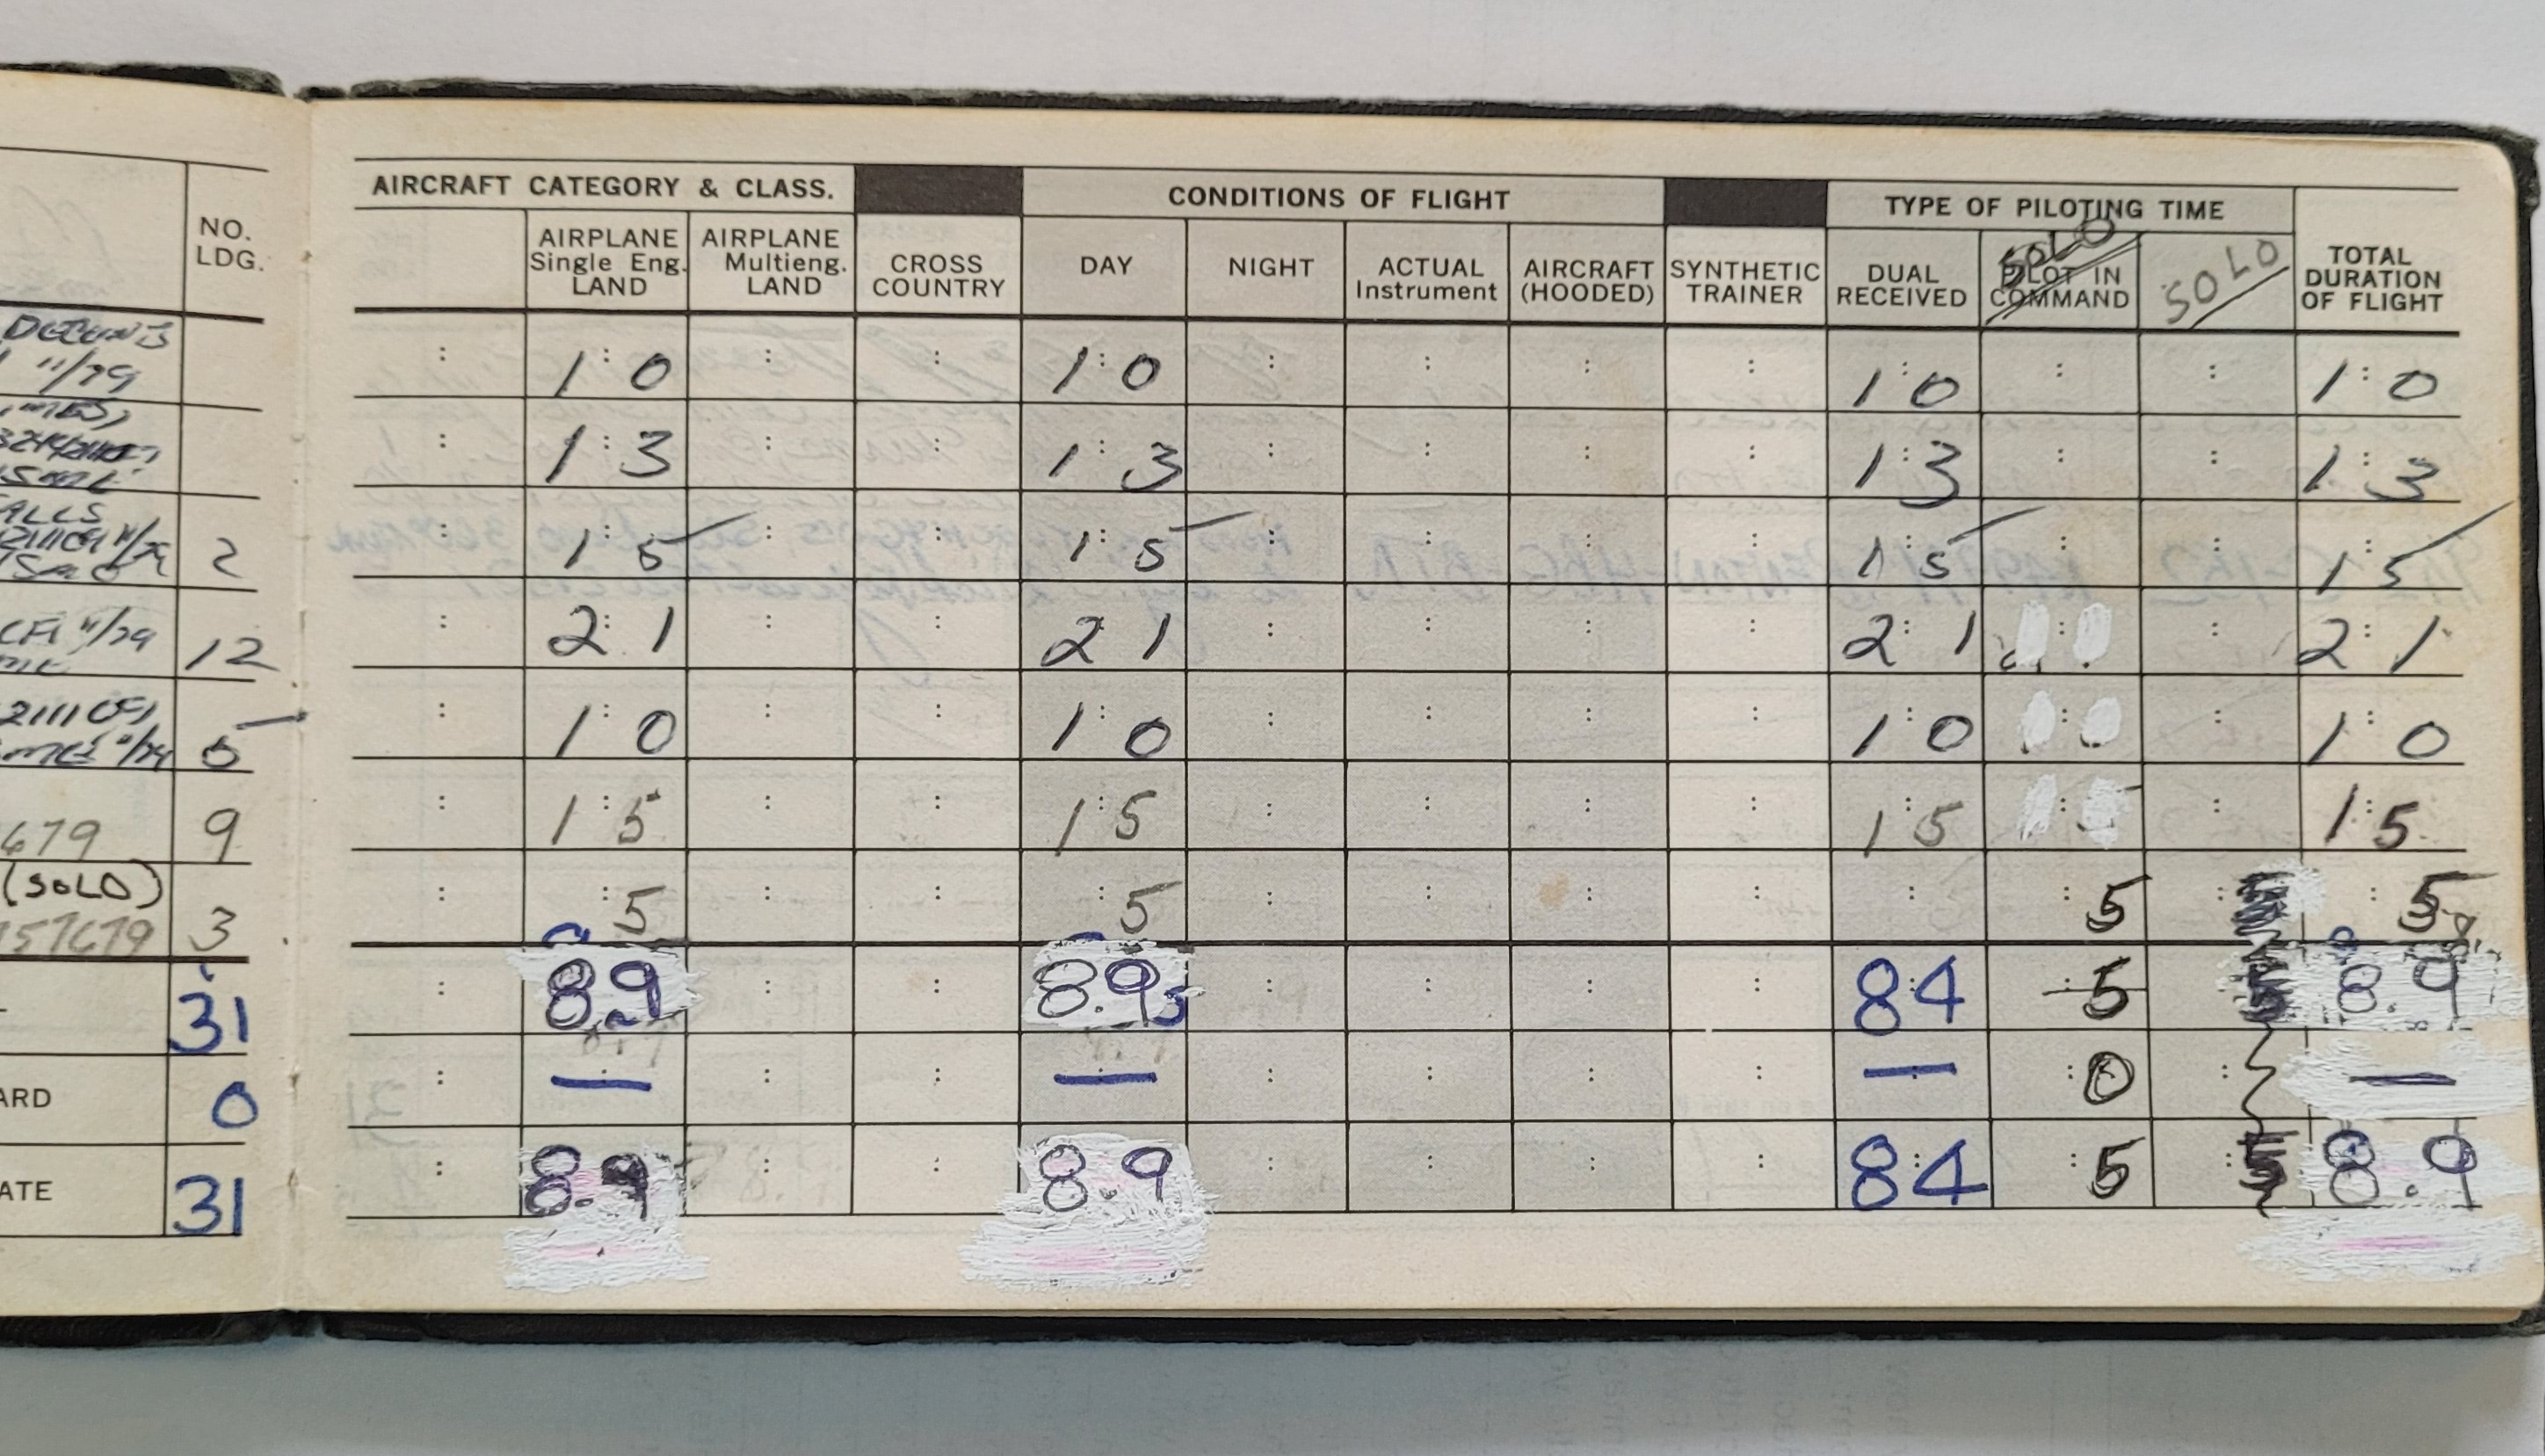 AIRCRAFT CATEGORY & CLASS. CONDITIONS OF FLIGHT TYPE OF PILOTING TIME
NO. LDG. AIRPLANE Single Eng. LAND AIRPLANE Multieng. LAND CROSS COUNTRY DAY NIGHT ACTUAL Instrument AIRCRAFT (HOODED) SYNTHETIC TRAINER DUAL RECEIVED SOLO PILOT IN COMMAND SOLO TOTAL DURATION OF FLIGHT
11/79 : 1:0 : : 1:0 : : : : 1:0 : : 1:0
: 1:3 : : 1:3 : : : : 1:3 : : 1:3
2 : 1:5 : : 1:5 : : : : 1:5 : : 1:5
CFI 11/79 12 : 2:1 : : 2:1 : : : : 2:1 : : 2:1
5 : 1:0 : : 1:0 : : : : 1:0 : : 1:0
679 9 : 1:5 : : 1:5 : : : : 1:5 : : 1:5
(SOLO)
157679 3 : :5 : : :5 : : : : : :5 : :5
31 : 8.9 : : 8.9 : : : : 8:4 5 8.9
ARD 0 : — : : — : : : : — :0 : —
ATE 31 : 8.9 : : 8.9 : : : : 8:4 :5 : 8.9